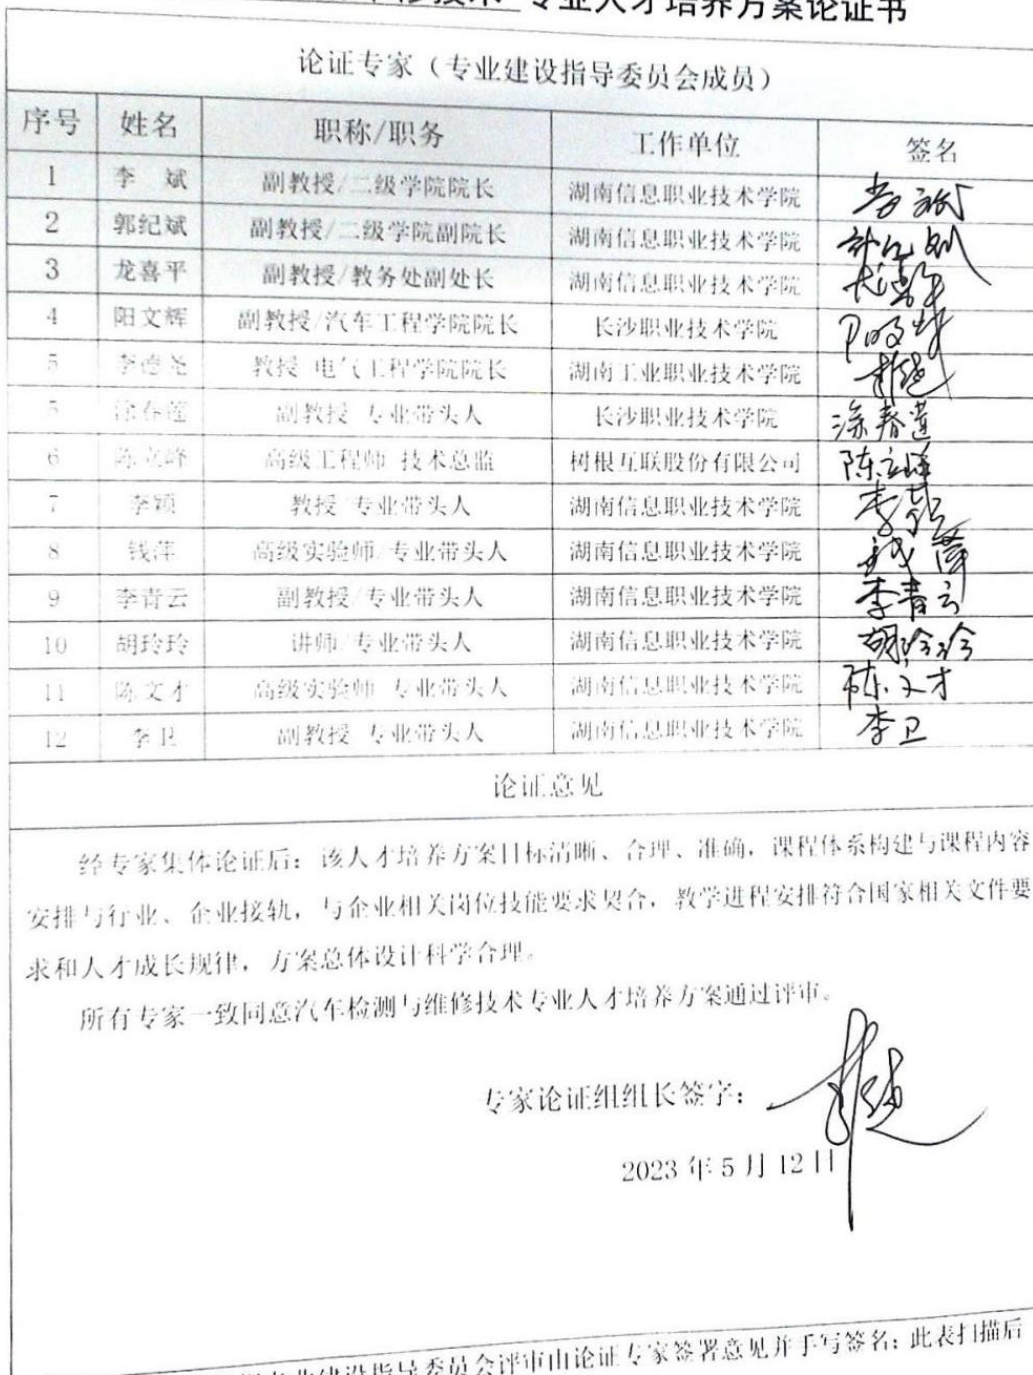 技术 专业人才培养方案论证书
论证专家（专业建设指导委员会成员）
序号 姓名 职称/职务 工作单位 签名
1 李 斌 副教授/二级学院院长 湖南信息职业技术学院
2 郭纪斌 副教授/二级学院副院长 湖南信息职业技术学院
3 龙喜平 副教授/教务处副处长 湖南信息职业技术学院 龙喜平
4 阳文辉 副教授/汽车工程学院院长 长沙职业技术学院 阳文辉
5 李德尧 教授 电气工程学院院长 湖南工业职业技术学院
5 涂春莲 副教授 专业带头人 长沙职业技术学院 涂春莲
6 陈立峰 高级工程师 技术总监 树根互联股份有限公司 陈立峰
7 李颖 教授 专业带头人 湖南信息职业技术学院 李颖
8 钱萍 高级实验师/专业带头人 湖南信息职业技术学院 钱萍
9 李青云 副教授/专业带头人 湖南信息职业技术学院 李青云
10 胡玲玲 讲师/专业带头人 湖南信息职业技术学院 胡玲玲
11 陈文才 高级实验师 专业带头人 湖南信息职业技术学院 陈文才
12 李卫 副教授 专业带头人 湖南信息职业技术学院 李卫
论证意见
经专家集体论证后：该人才培养方案目标清晰、合理、准确，课程体系构建与课程内容
安排与行业、企业接轨，与企业相关岗位技能要求契合，教学进程安排符合国家相关文件要
求和人才成长规律，方案总体设计科学合理。
所有专家一致同意汽车检测与维修技术专业人才培养方案通过评审。
专家论证组组长签字：
2023 年 5 月 12 日
专业建设指导委员会评审由论证专家签署意见并手写签名；此表扫描后